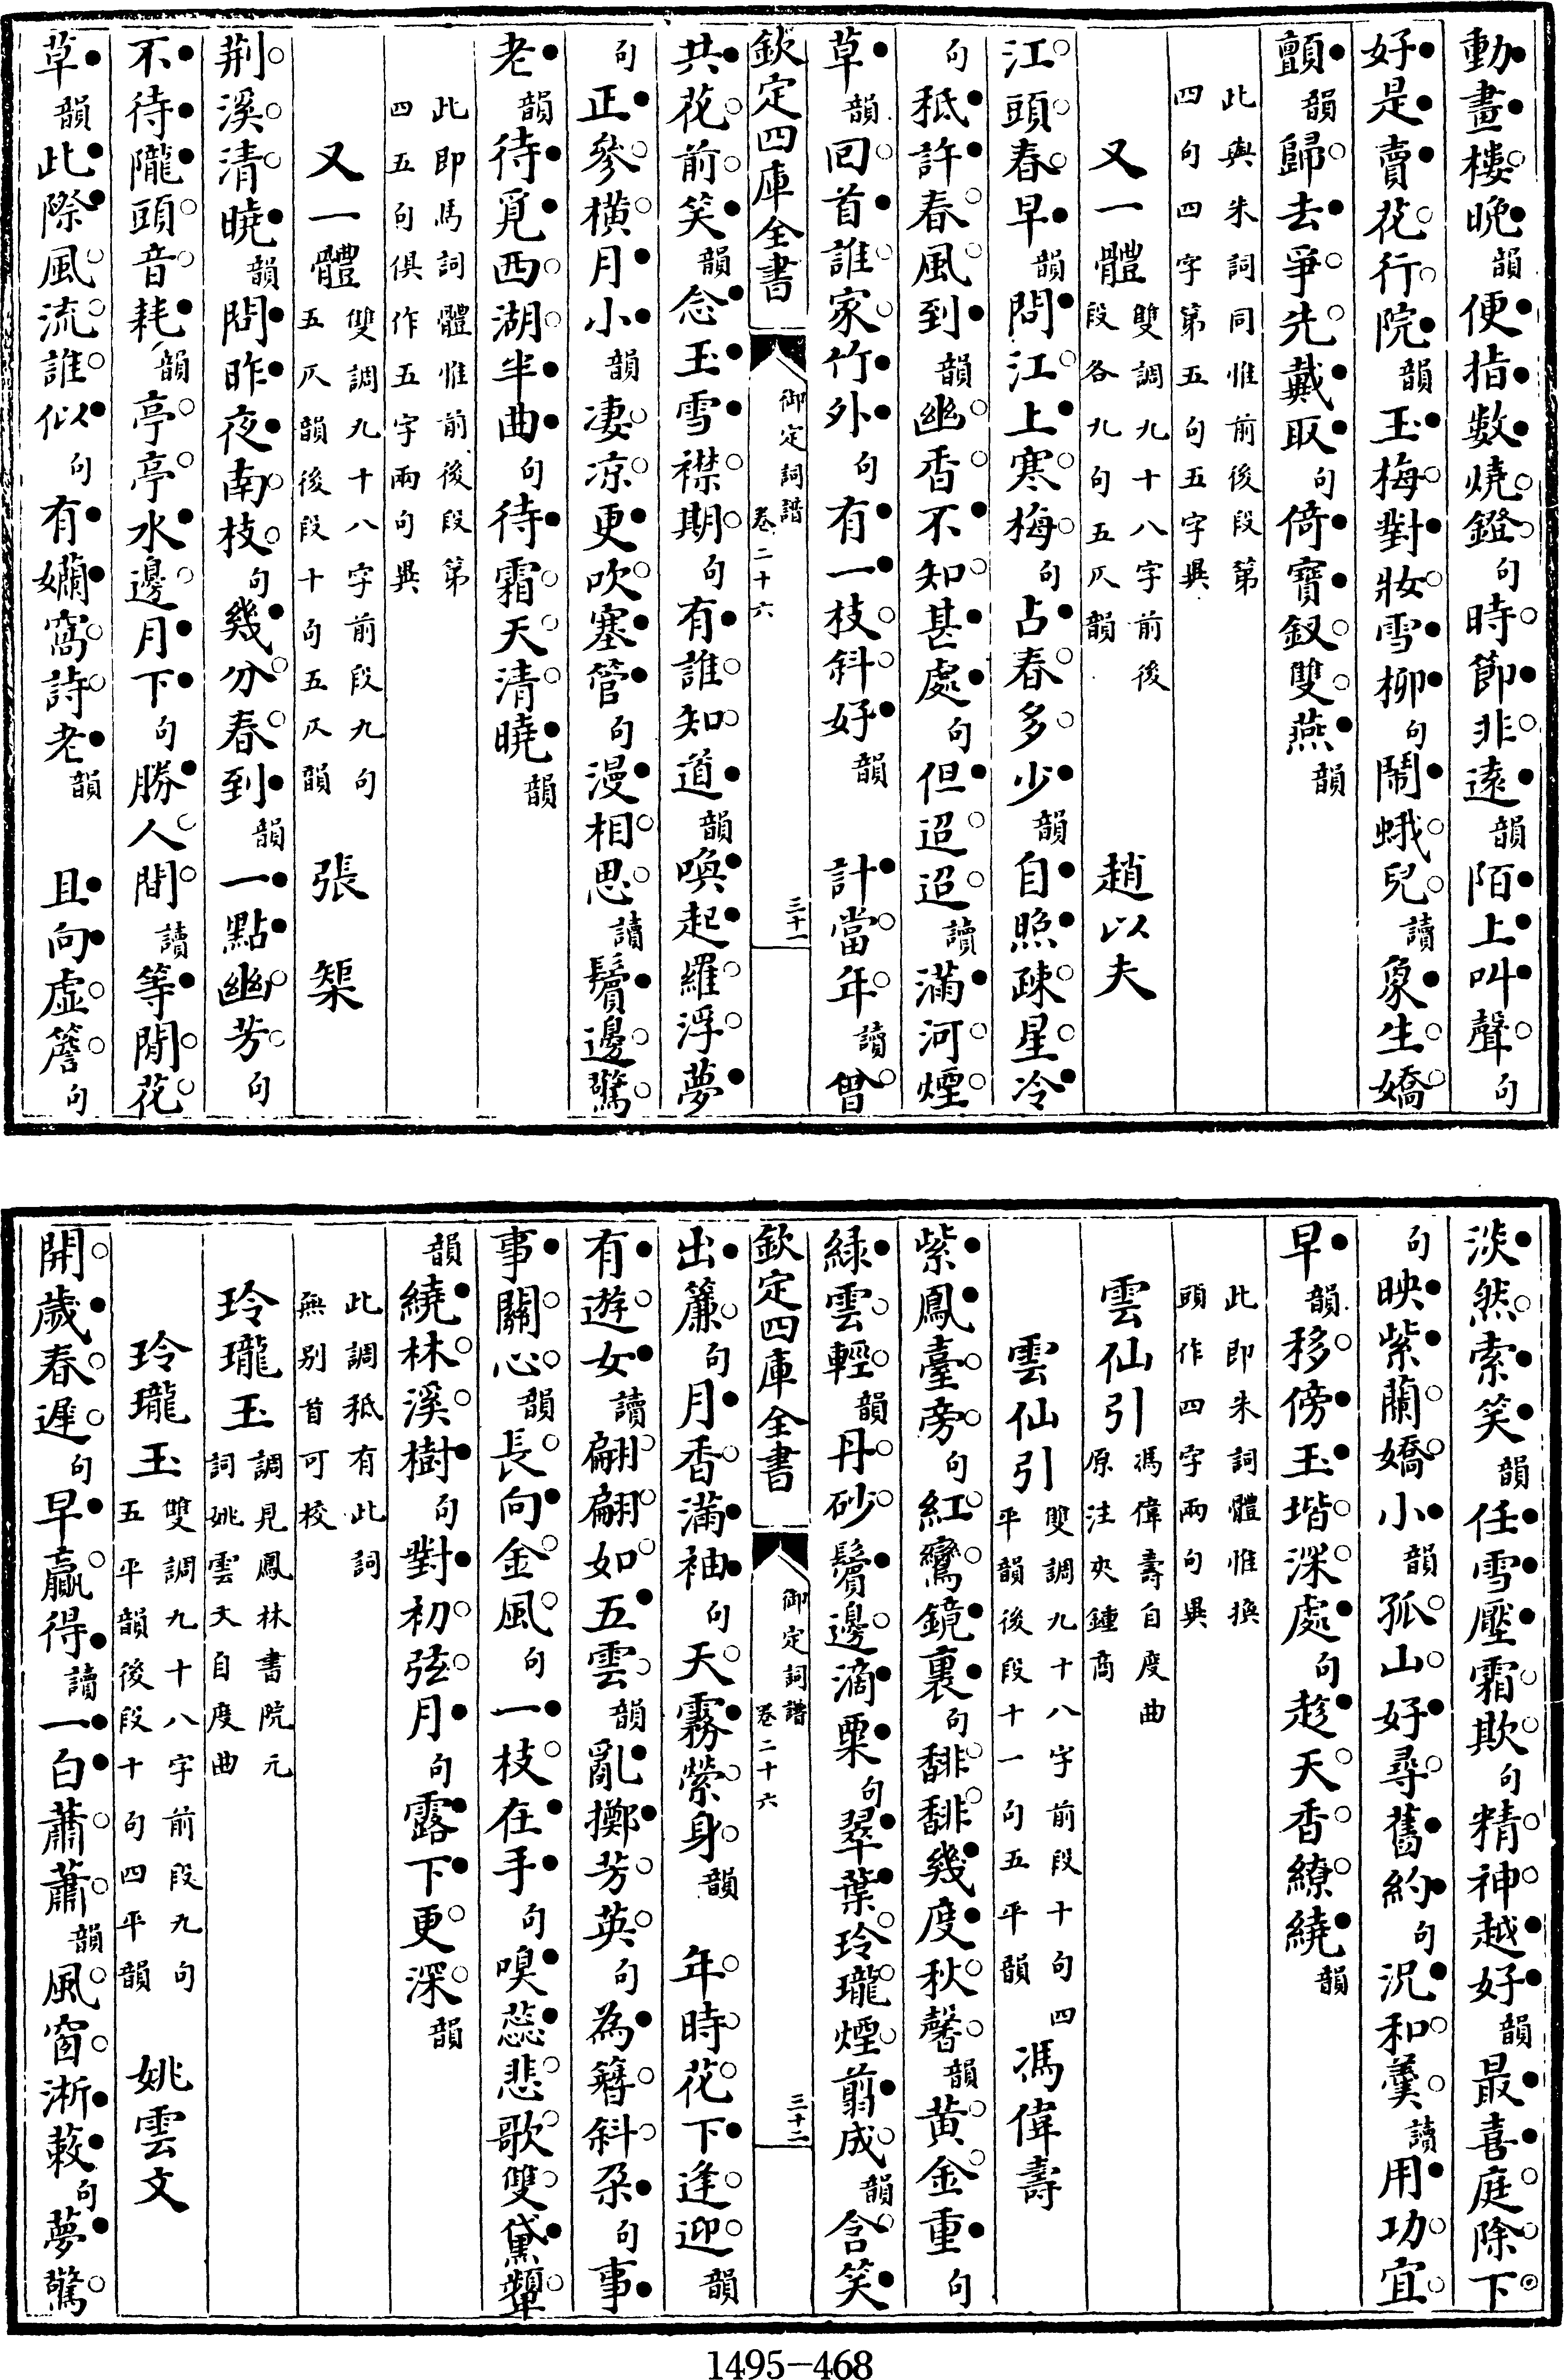 動畫樓晚韻便指數燒鐙句時節非遠韻陌上叫聲句
好是賣花行院韻玉梅對妝雪柳句鬧蛾兒讀象生嬌
顫韻歸去爭先戴取句倚寶釵雙燕韻
此與朱詞同惟前後段第
四句四字第五句五字異
又一體雙調九十八字前後
段各九句五仄韻
趙以夫
江頭春早韻問江上寒梅句占春多少韻自照疎星冷
句秪許春風到韻幽香不知甚處句但迢迢讀滿河煙
草韻回首誰家竹外句有一枝斜好韻 計當年讀曾
欽定四庫全書
御定詞譜
卷二十六
三十一
共花前笑韻念玉雪襟期句有誰知道韻喚起羅浮夢
句正參橫月小韻凄凉更吹塞管句漫相思讀鬢邊驚
老韻待覓西湖半曲句待霜天清曉韻
此即馬詞體惟前後段第
四五句俱作五字兩句異
又一體雙調九十八字前段九句
五仄韻後段十句五仄韻
張榘
荆溪清曉韻問昨夜南枝句幾分春到韻一點幽芳句
不待隴頭音耗韻亭亭水邊月下句勝人間讀等閒花
草韻此際風流誰似句有嬾窩詩老韻 且向虛簷句
淡然索笑韻任雪壓霜欺句精神越好韻最喜庭除下
句映紫蘭嬌小韻孤山好尋舊約句況和羹讀用功宜
早韻移傍玉堦深處句趁天香繚繞韻
此即朱詞體惟換
頭作四字兩句異
雲仙引馮偉壽自度曲
原注夾鍾商
雲仙引雙調九十八字前段十句四
平韻後段十一句五平韻
馮偉壽
紫鳳臺旁句紅鸞鏡裏句馡馡幾度秋馨韻黃金重句
綠雲輕韻丹砂鬢邊滴粟句翠葉玲瓏煙剪成韻含笑
欽定四庫全書
御定詞譜
卷二十六
三十二
出簾句月香滿袖句天霧縈身韻 年時花下逢迎韻
有遊女讀翩翩如五雲韻亂擲芳英句為簪斜朶句事
事關心韻長向金風句一枝在手句嗅蕊悲歌雙黛顰
韻繞林溪樹句對初弦月句露下更深韻
此調秪有此詞
無别首可校
玲瓏玉調見鳳林書院元
詞姚雲文自度曲
玲瓏玉雙調九十八字前段九句
五平韻後段十句四平韻
姚雲文
開歲春遲句早贏得讀一白蕭蕭韻風窗淅䔩句夢驚
1495-468